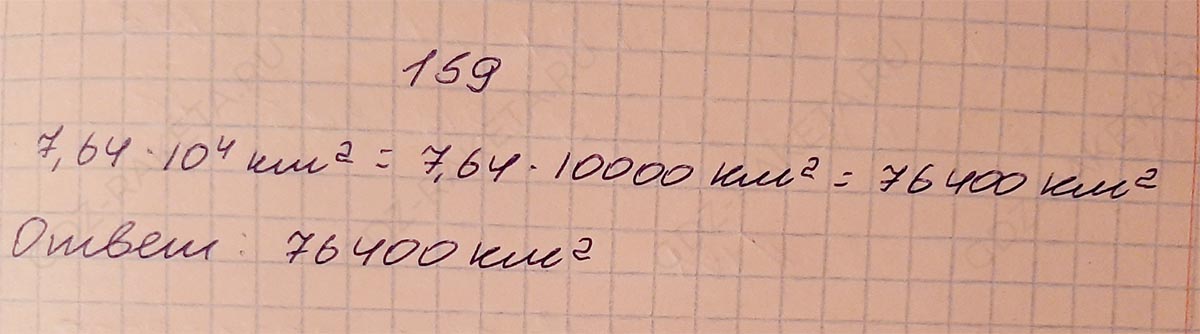 159
7,64 · 10⁴ км² = 7,64 · 10000 км² = 76400 км²
Ответ: 76400 км²